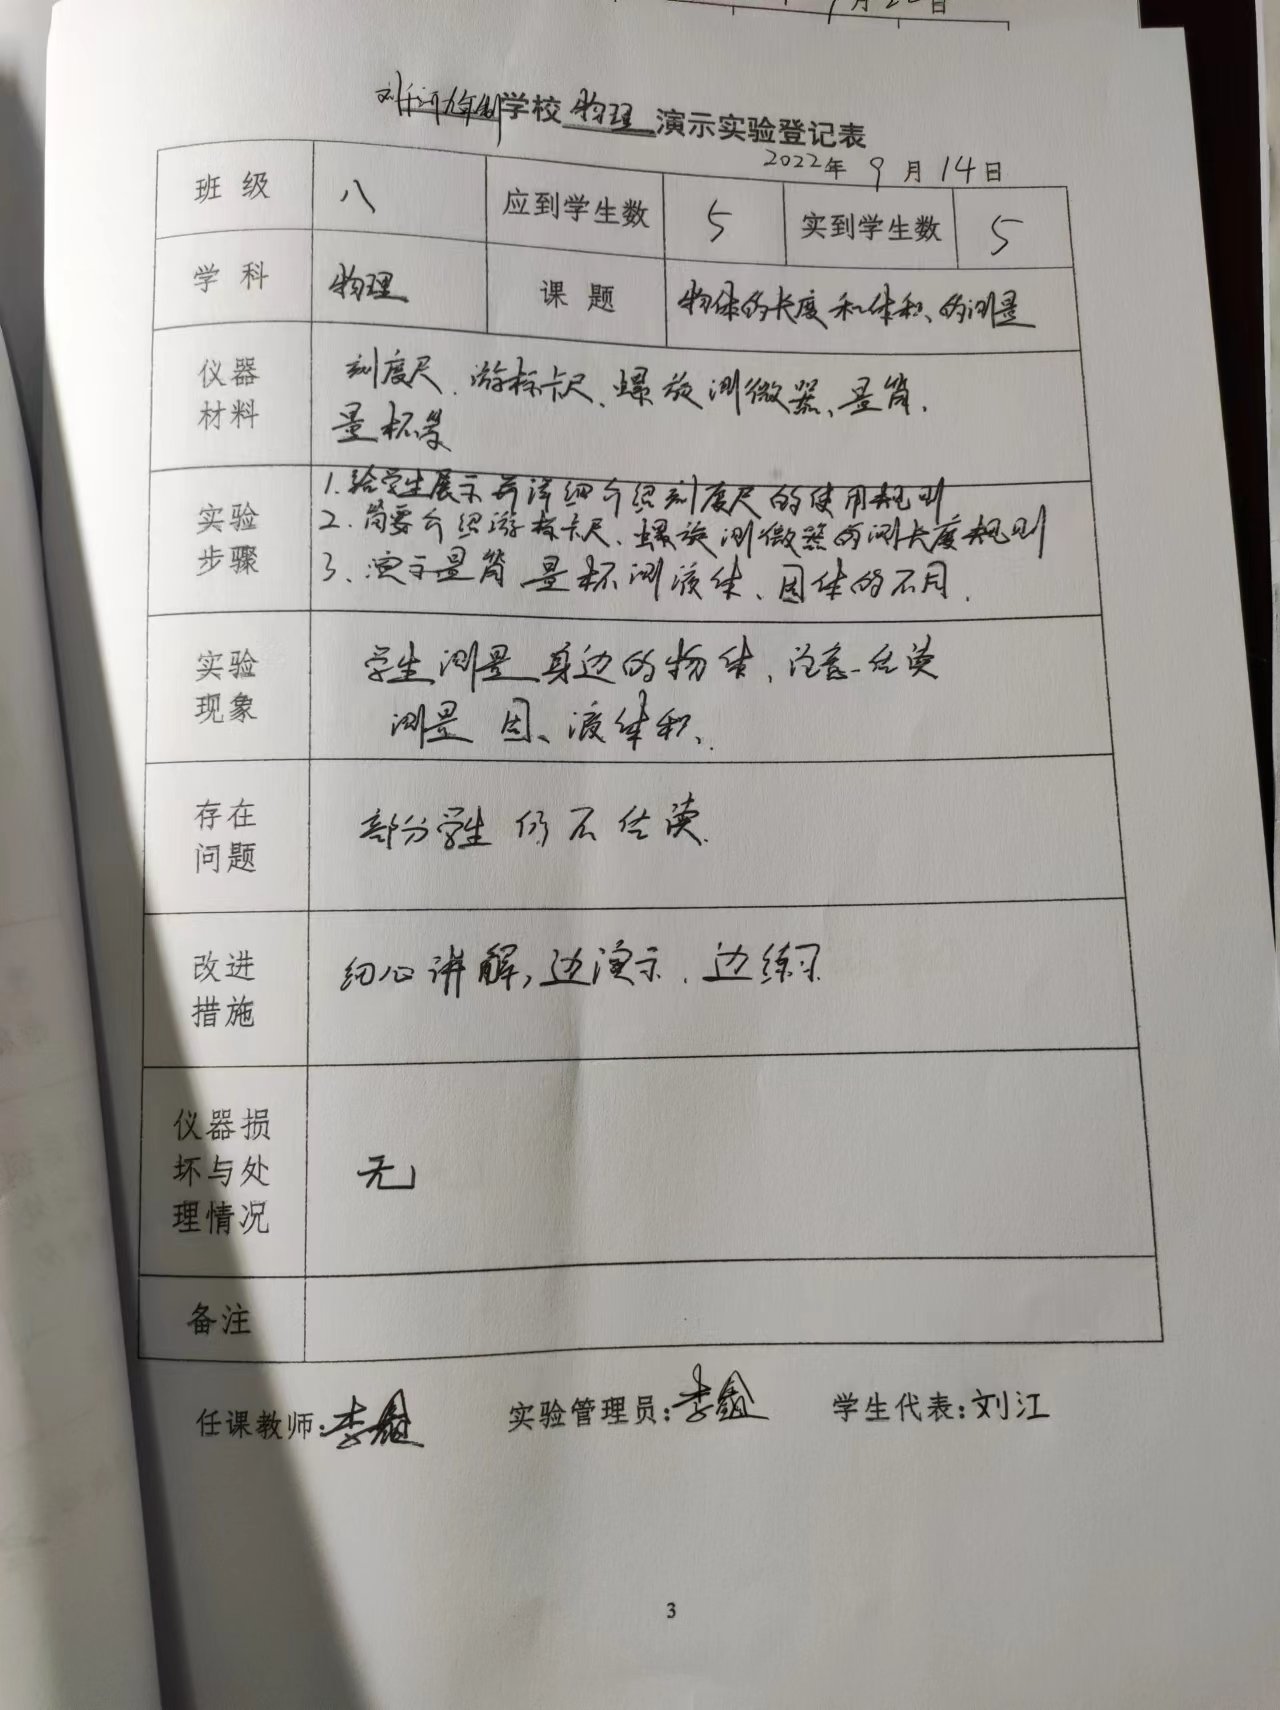 月22日
学校 物理 演示实验登记表
2022年 9月 14日
班级 八 应到学生数 5 实到学生数 5
学科 物理 课题 物体的长度和体积的测量
仪器材料 刻度尺、游标卡尺、螺旋测微器、量筒、
量杯等
实验步骤 1.给学生展示并详细介绍刻度尺的使用规则
2.简要介绍游标卡尺、螺旋测微器的测长度规则
3、演示量筒 量杯测液体、固体的不同.
实验现象 学生测量身边的物体,注意估读
测量 固、液体积.
存在问题 部分学生仍不估读.
改进措施 细心讲解,边演示、边练习
仪器损坏与处理情况 无
备注
任课教师:李鑫 实验管理员:李鑫 学生代表:刘江
3